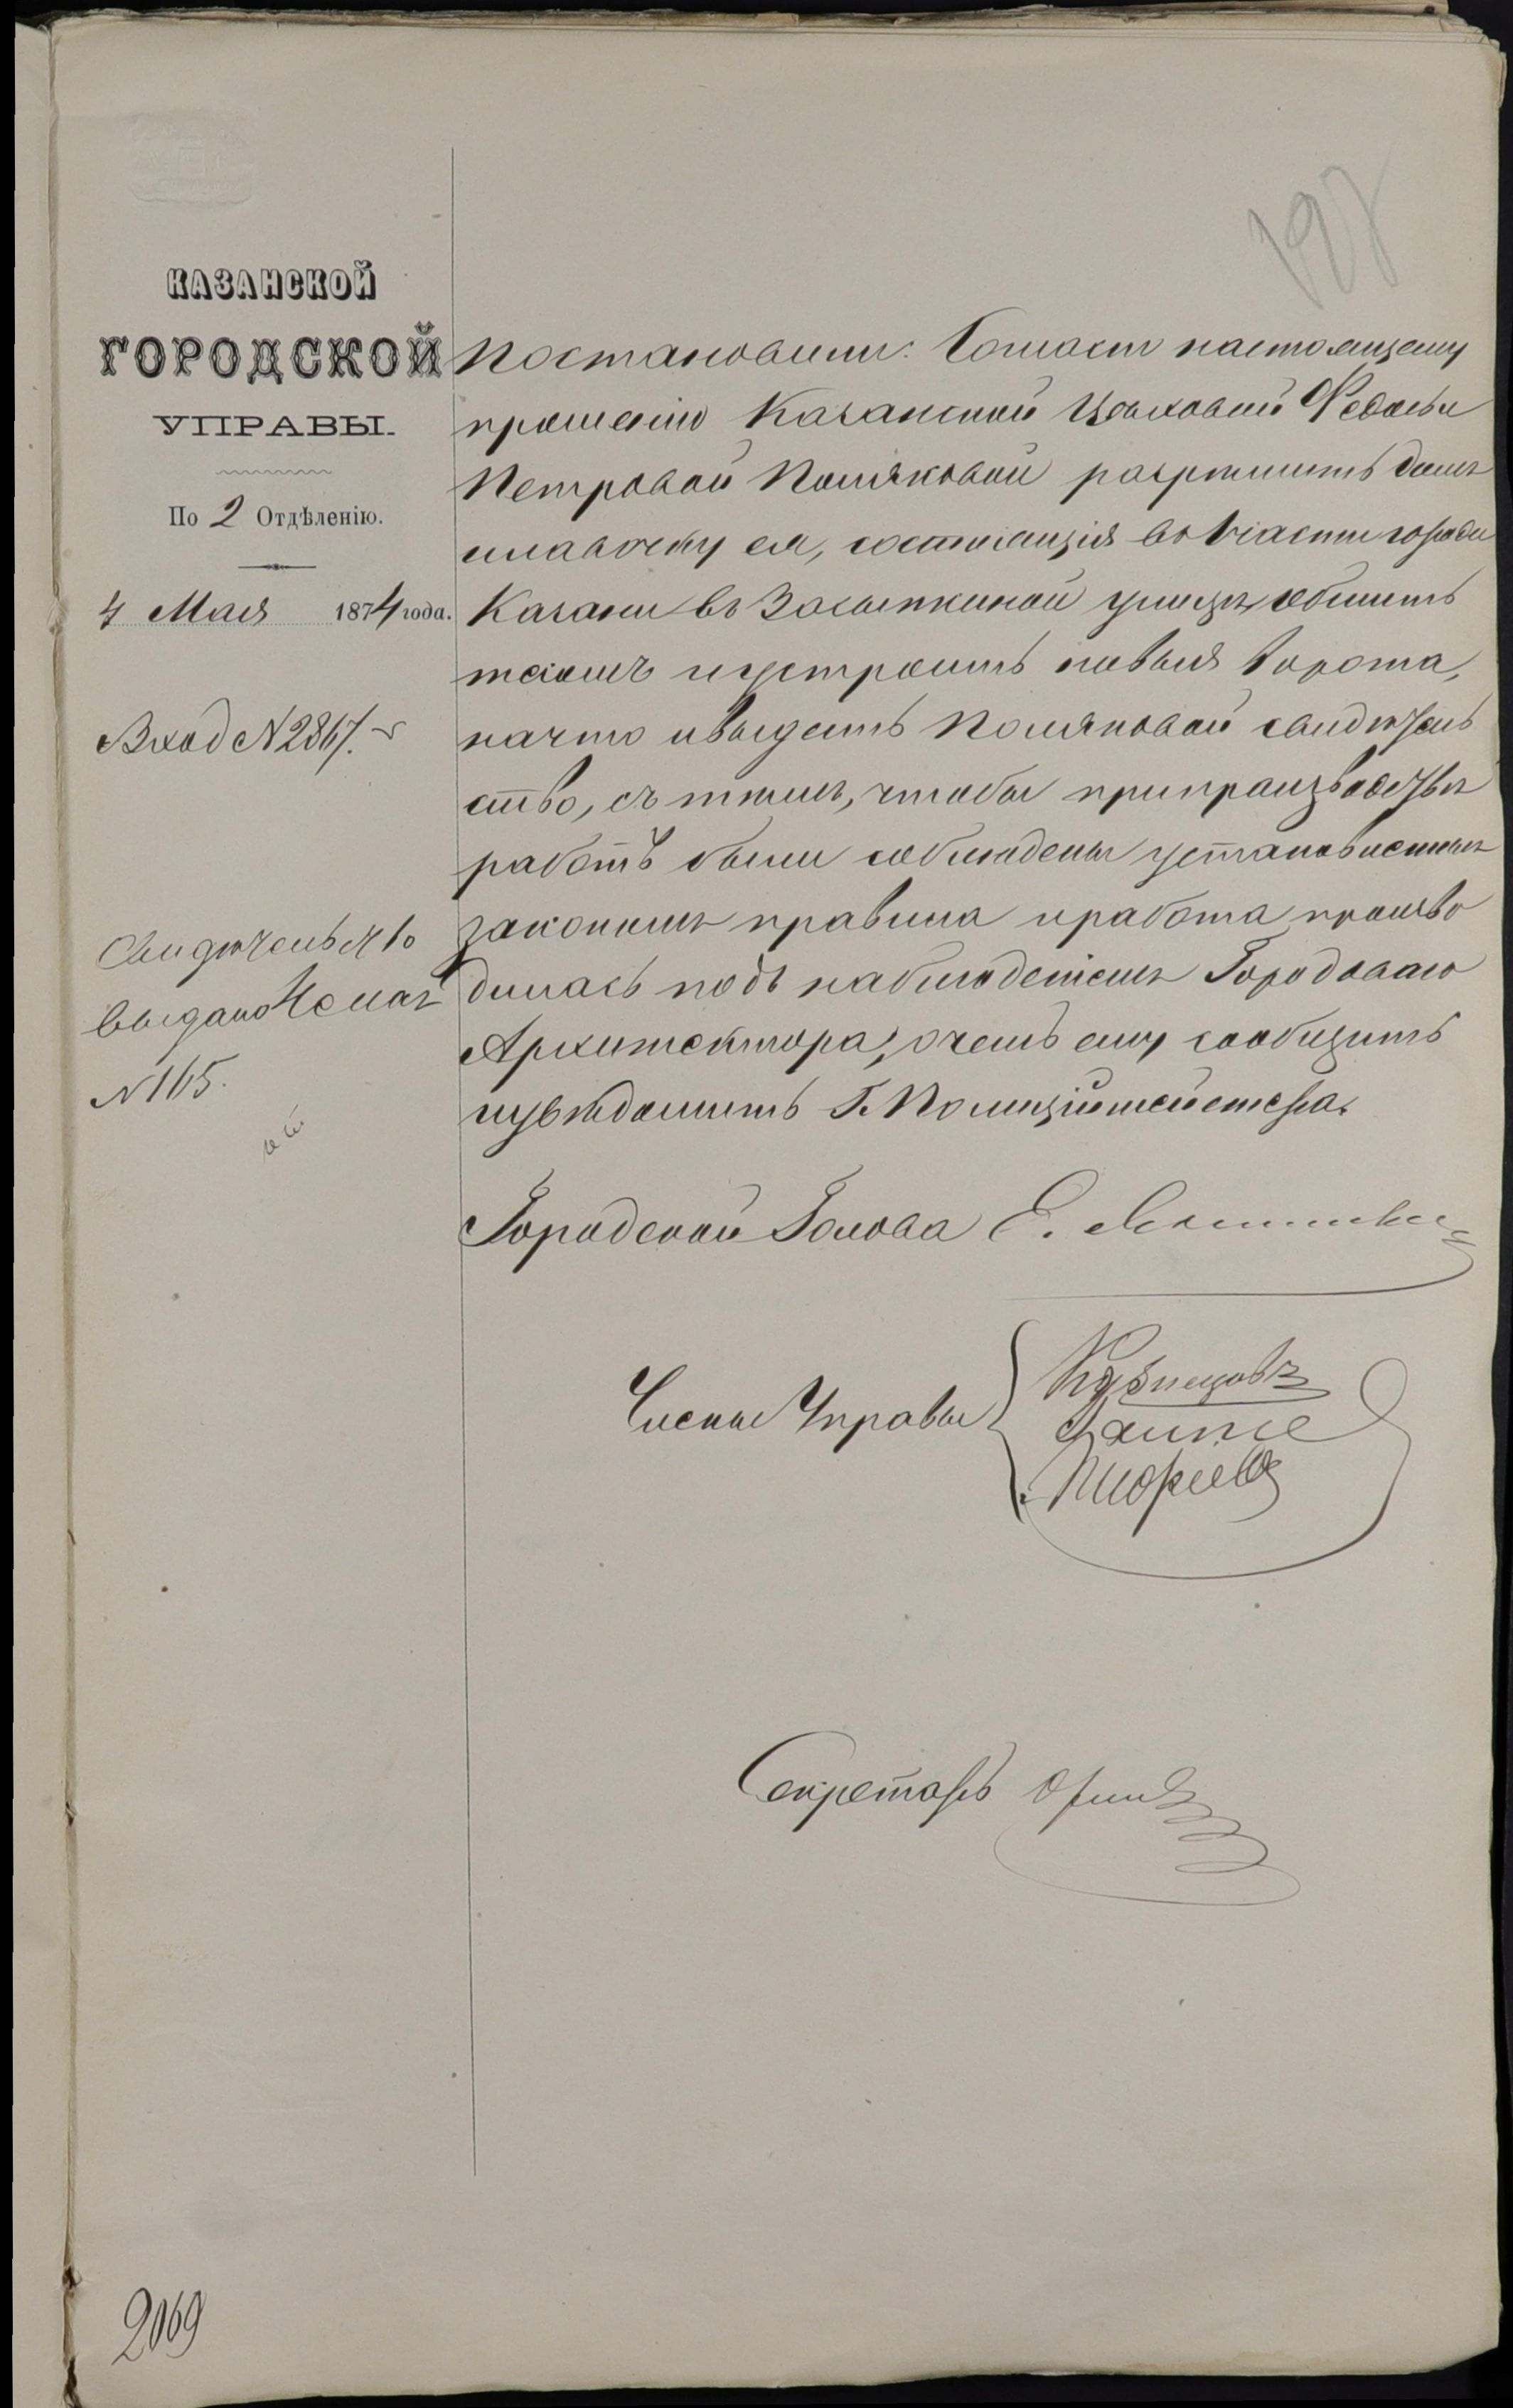 197
КАЗАНСКОЙ
ГОРОДСКОЙ
УПРАВЫ.
По 2 Отдѣленію.
4 Мая 1874 года.
Вход № 2867.
Свидѣтельство
выдано 4 мая
№ 165.
Постановили: Согласно настоящему
прошенію Казанской Цѣховой Федосьи
Петровой Поляковой разрѣшить домъ
и лавочку ея, состоящія во части города
Казани въ Засыпкиной улицѣ обшить
тесомъ и устроить новыя ворота,
на что и выдать Поляковой свидѣтель
ство, съ тѣмъ, чтобы при производствѣ
работъ были соблюдены установленныя
закономъ правила и работа произво
дилась подъ наблюденіемъ Городоваго
Архитектора, о чемъ ему сообщить
и увѣдомить Г. Полиціймейстера.
Городской Голова Е.
Члены Управы
Кузнецовъ
Секретарь
2069